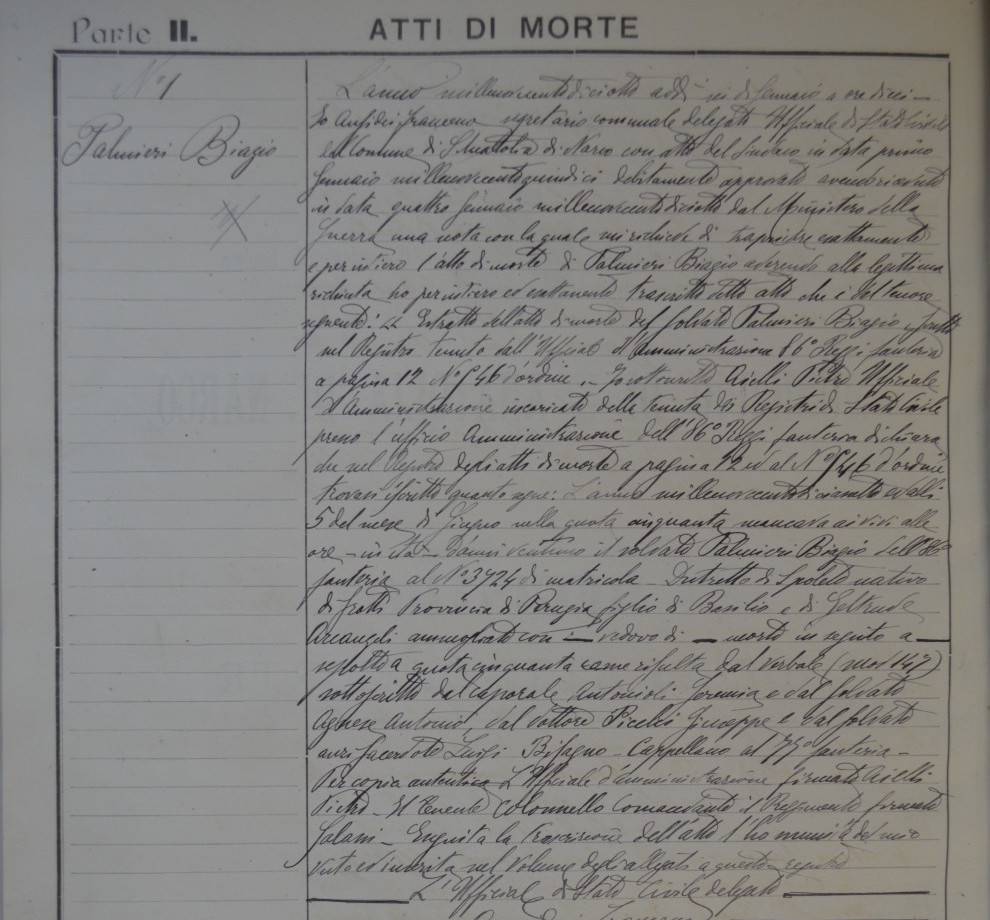 Parte II. ATTI DI MORTE
N° 1
Palmieri Biagio
L'anno millenovecentodiciotto addì sei di Gennaio a ore dieci —
Io Ansidei Francesco segretario comunale delegato Ufficiale di Stato Civile
del Comune di S. Anatolia di Narco con atto del Sindaco in data primo
Gennaio millenovecentoquindici debitamente approvato avendo ricevuto
in data quattro Gennaio millenovecentodiciotto dal Ministero della
Guerra una nota con la quale mi richiede di trascrivere esattamente
e per intiero l'atto di morte di Palmieri Biagio aderendo alla legittima
richiesta ho per intiero ed esattamente trascritto detto atto che è del tenore
seguente: Estratto dell'atto di morte del soldato Palmieri Biagio inscritto
nel Registro tenuto dall'Ufficiale d'Amministrazione 86° Regg. fanteria
a pagina 12 N° 546 d'ordine. — Io sottoscritto Aielli Pietro Ufficiale
d'Amministrazione incaricato della tenuta dei Registri di Stato Civile
presso l'ufficio Amministrazione dell'86° Regg. fanteria dichiara
che nel Registro degli atti di morte a pagina 12 ed al N° 546 d'ordine
trovasi iscritto quanto segue: L'anno millenovecentodiciassette ed alli
5 del mese di Giugno nella quota cinquanta mancava ai vivi alle
ore — in età d'anni ventuno il soldato Palmieri Biagio dell'86°
fanteria al N° 3724 di matricola — Distretto di Spoleto nativo
di Provincia di Perugia figlio di Basilio e di Geltrude
Arcangeli ammogliato con — vedovo di — morto in seguito a —
sepolto a quota cinquanta come risulta dal verbale (mod 147)
sottoscritto dal caporale Antonioli Geremia e dal soldato
Agnese Antonio, dal dottore Picchi Giuseppe e dal soldato
Sacerdote Luigi Bifagno — Cappellano al 77° fanteria —
Per copia autentica L'Ufficiale d'amministrazione firmato Aielli
Pietro — Il Tenente Colonnello Comandante il Reggimento firmato
Galani — Eseguita la trascrizione dell'atto l'ho munita del mio
visto ed inserita nel volume degli allegati a questo registro
L'Ufficiale di Stato Civile delegato